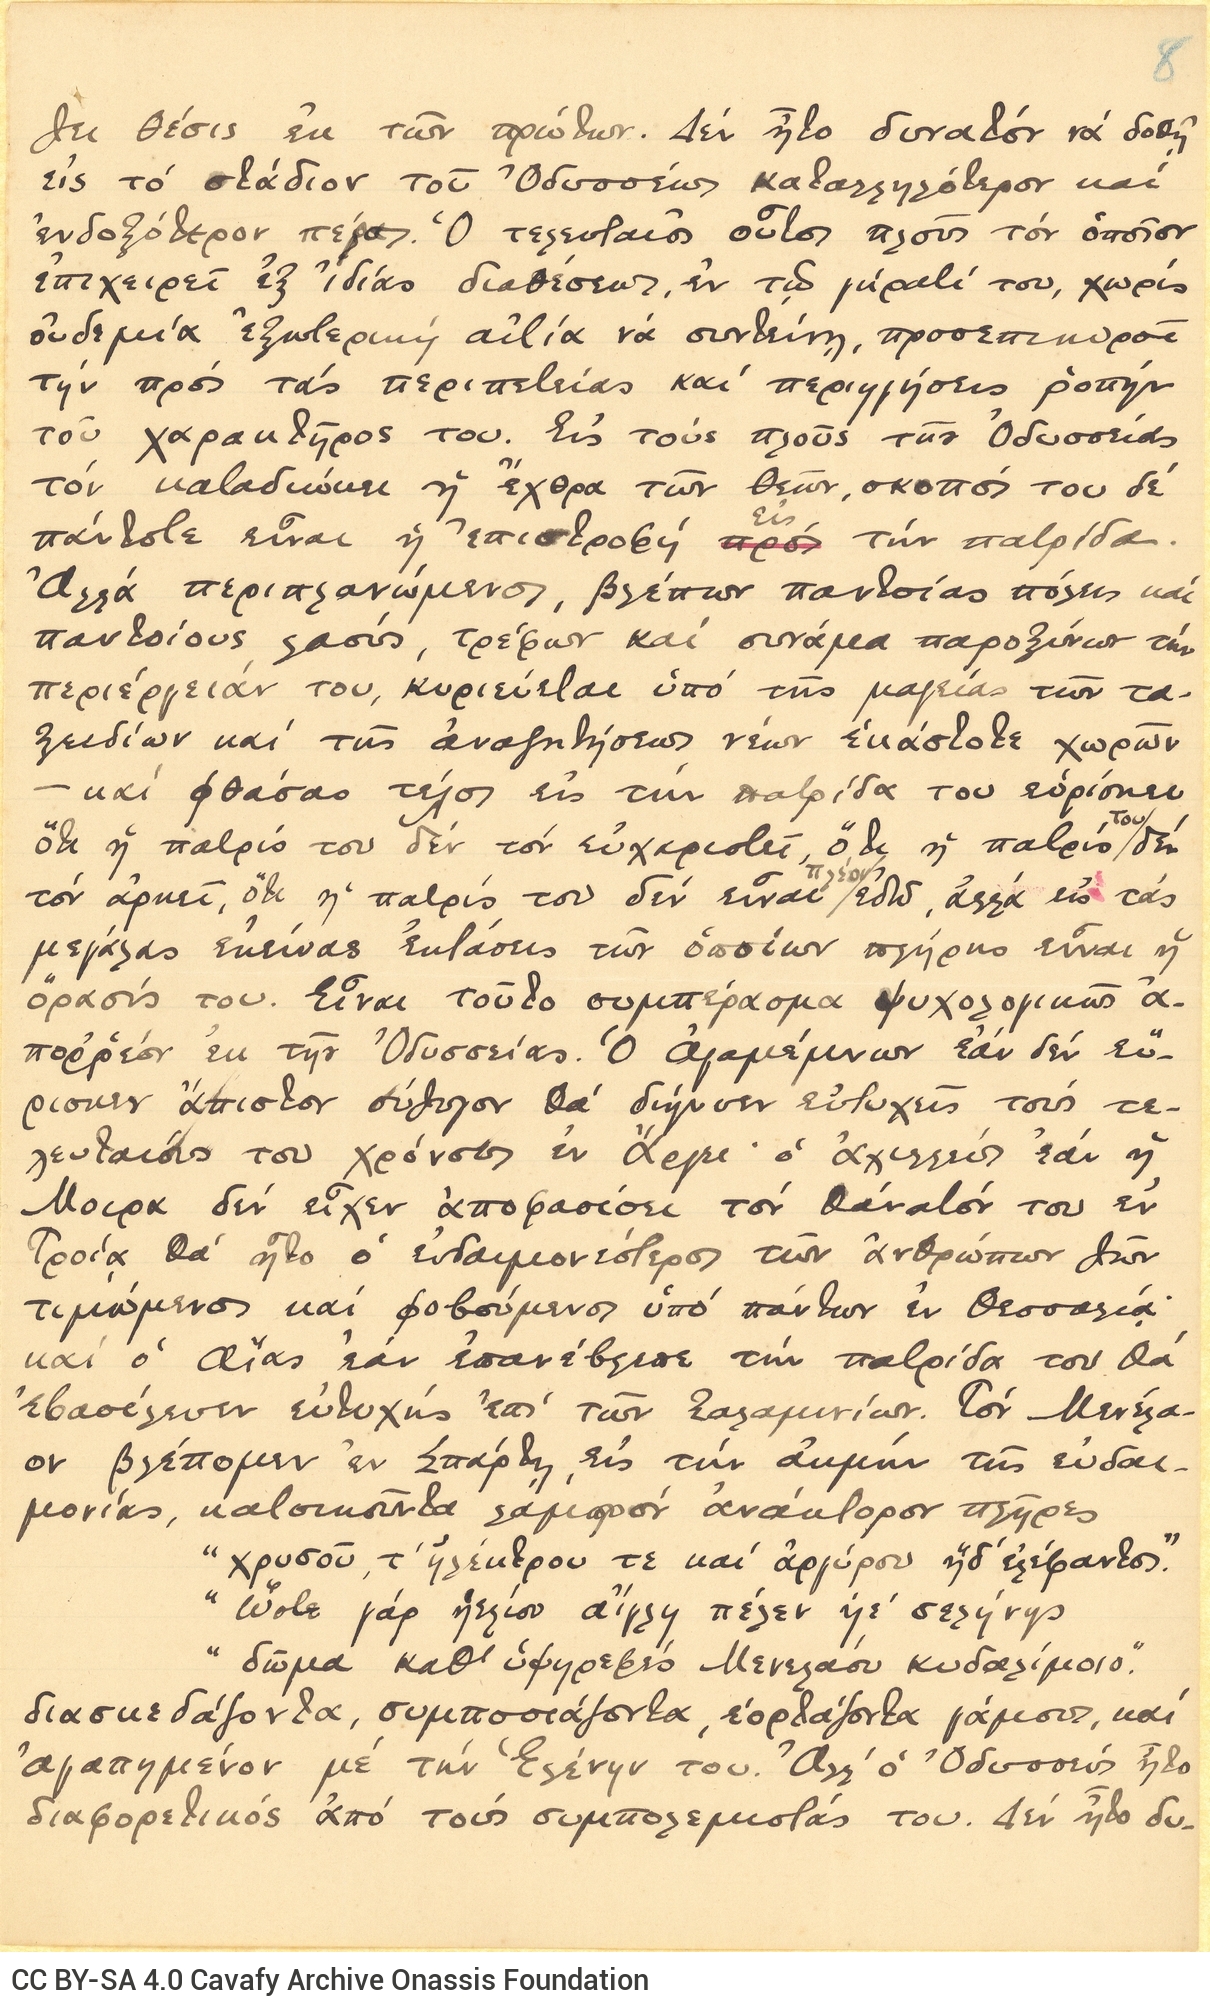 8
ζει θέσις ἐκ τῶν πρώτων. Δέν ἦτο δυνατόν νά δοθῇ
εἰς τό στάδιον τοῦ Ὀδυσσέως καταλληλότερον καί
ἐνδοξότερον πέρας. Ὁ τελευταῖος οὗτος πλοῦς τόν ὁποῖον
ἐπιχειρεῖ ἐξ ἰδίας διαθέσεως, ἐν τῷ γήρατί του, χωρίς
οὐδεμία ἐξωτερική αἰτία νά συντείνῃ, προσεπικυροῖ
τήν πρός τάς περιπετείας καί περιηγήσεις ῥοπήν
τοῦ χαρακτῆρος του. Εἰς τούς πλοῦς τῆς Ὀδυσσείας
τόν καταδιώκει ἡ ἔχθρα τῶν θεῶν, σκοπός του δέ
πάντοτε εἶναι ἡ ἐπιστροφή πρός εἰς τήν πατρίδα.
Ἀλλά περιπλανώμενος, βλέπων παντοίας πόλεις καί
παντοίους λαούς, τρέφων καί συνάμα παροξύνων τήν
περιέργειάν του, κυριεύεται ὑπό τῆς μαγείας τῶν τα-
ξειδίων καί τῆς ἀναζητήσεως νέων ἑκάστοτε χωρῶν
— καί φθάσας τέλος εἰς τήν πατρίδα του εὑρίσκει
ὅτι ἡ πατρίς του δέν τόν εὐχαριστεῖ, ὅτι ἡ πατρίς του δέν
τόν ἀρκεῖ, ὅτι ἡ πατρίς του δέν εἶναι πλέον ἐδῶ, ἀλλά εἰς τάς
μεγάλας ἐκείνας ἐκτάσεις τῶν ὁποίων πλήρης εἶναι ἡ
ὅρασίς του. Εἶναι τοῦτο συμπέρασμα ψυχολογικῶς ἀ-
πορῤῥέον ἐκ τῆς Ὀδυσσείας. Ὁ Ἀγαμέμνων ἐάν δέν εὕ-
ρισκεν ἄπιστον σύζυγον θά διήγυεν εὐτυχεῖς τούς τε-
λευταίους του χρόνους ἐν Ἄργει· ὁ Ἀχιλλεύς ἐάν ἡ
Μοιρα δέν εἶχεν ἀποφασίσει τόν θάνατόν του ἐν
Τροίᾳ θά ἦτο ὁ εὐδαιμονέστερος τῶν ἀνθρώπων ζῶν
τιμώμενος καί φοβούμενος ὑπό πάντων ἐν Θεσσαλίᾳ·
καί ὁ Αἴας ἐάν ἐπανέβλεπε τήν πατρίδα του θά
ἐβασίλευεν εὐτυχής ἐπί τῶν Σαλαμινίων. Τόν Μενέλα-
ον βλέπομεν ἐν Σπάρτῃ, εἰς τήν ἀκμήν τῆς εὐδαι-
μονίας, κατοικοῦντα λαμπρόν ἀνάκτορον πλῆρες
“χρυσοῦ, τ' ἠλέκτρου τε καί ἀργύρου ἠδ' ἐλέφαντος.”
“ Ὥστε γάρ ἠελίου αἴγλη πέλεν ἠέ σελήνης
“ δῶμα καθ' ὑψηρεφές Μενελάου κυδαλίμοιο.”
διασκεδάζοντα, συμποσιάζοντα, ἑορτάζοντα γάμους, καί
ἀγαπημένον μέ τήν Ἑλένην του. Ἀλλ' ὁ Ὀδυσσεύς ἦτο
διαφορετικός ἀπό τούς συμπολεμιστάς του. Δέν ἦτο δυ-
CC BY-SA 4.0 Cavafy Archive Onassis Foundation